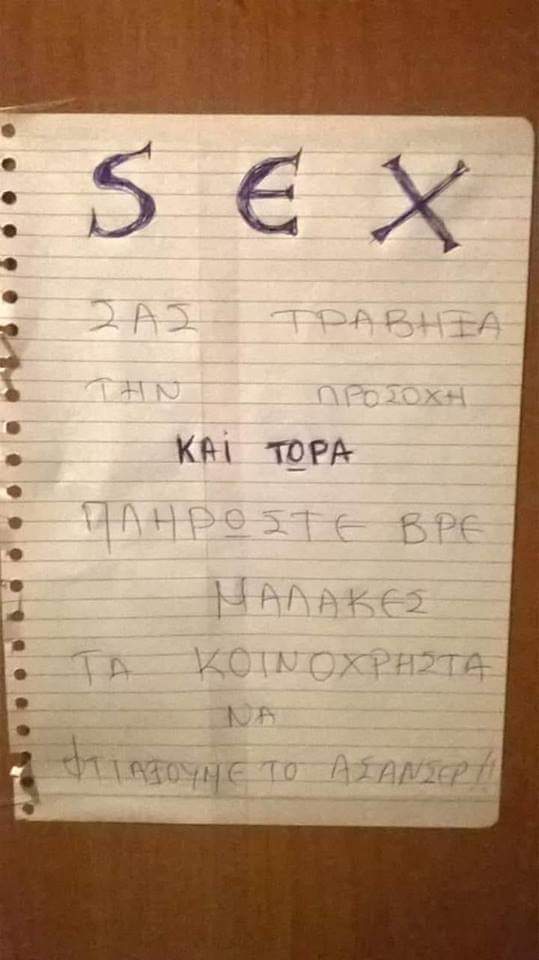 SEX
ΣΑΣ ΤΡΑΒΗΞΑ
ΤΗΝ ΠΡΟΣΟΧΗ
ΚΑΙ ΤΩΡΑ
ΠΛΗΡΩΣΤΕ ΒΡΕ
ΜΑΛΑΚΕΣ
ΤΑ ΚΟΙΝΟΧΡΗΣΤΑ
ΝΑ
ΦΤΙΑΞΟΥΜΕ ΤΟ ΑΣΑΝΣΕΡ!!